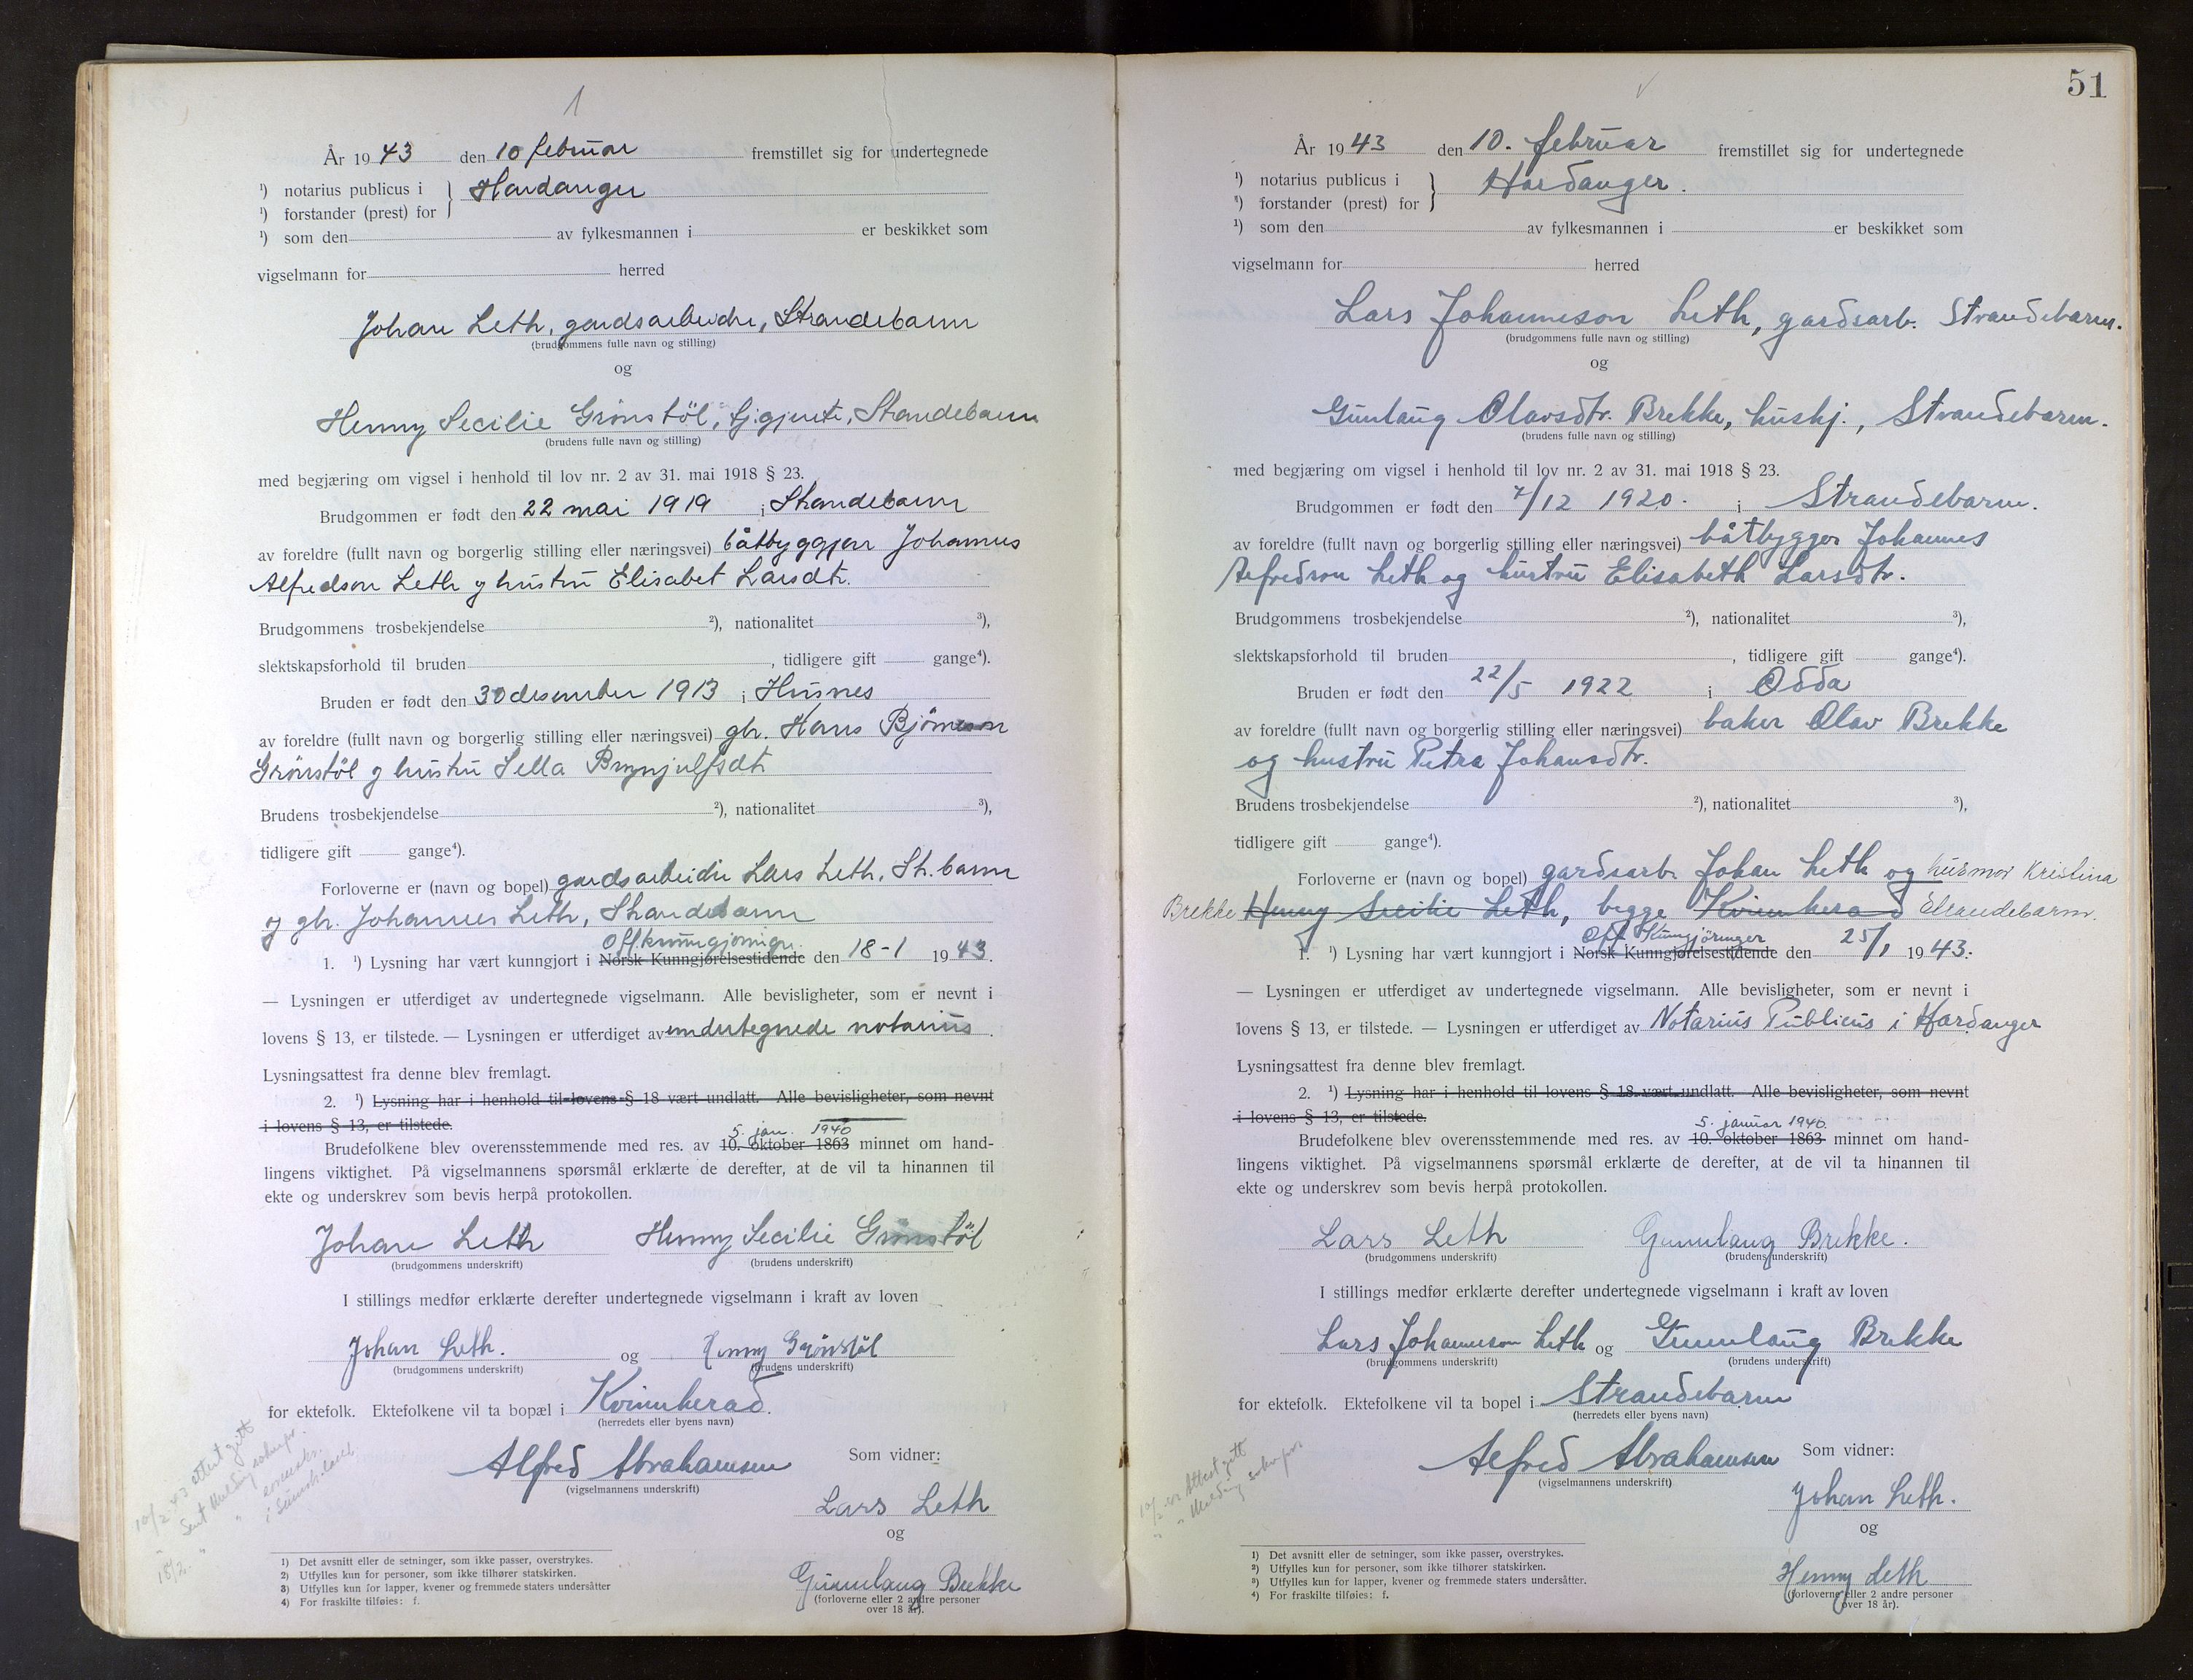 1
År 19 43 den 10 februar fremstillet sig for undertegnede
¹) notarius publicus i } Hardanger
¹) forstander (prest) for
¹) som den av fylkesmannen i er beskikket som
vigselmann for herred
Johan Leth, gardsarbeider, Strandebarm
(brudgommens fulle navn og stilling)
og
Henny Secilie Grönstöl, tj.gjente, Strandebarm
(brudens fulle navn og stilling)
med begjæring om vigsel i henhold til lov nr. 2 av 31. mai 1918 § 23.
Brudgommen er født den 22 mai 1919 i Strandebarm
av foreldre (fullt navn og borgerlig stilling eller næringsvei) båtbyggjar Johannes
Alfredson Leth og hustru Elisabet Larsdtr.
Brudgommens trosbekjendelse ²), nationalitet ³),
slektskapsforhold til bruden , tidligere gift gange⁴).
Bruden er født den 30 desember 1913 i Husnes
av foreldre (fullt navn og borgerlig stilling eller næringsvei) gbr. Hans Björneson
Grönstöl og hustru Sella Brynjulfsdtr
Brudens trosbekjendelse ²), nationalitet ³),
tidligere gift gange⁴).
Forloverne er (navn og bopel) gardsarbeider Lars Leth, St.barm
og gbr. Johannes Leth, Strandebarm
Off.kunngjöringer
1. ¹) Lysning har vært kunngjort i Norsk Kunngjørelsestidende den 18-1 19 43.
— Lysningen er utferdiget av undertegnede vigselmann. Alle bevisligheter, som er nevnt i
lovens § 13, er tilstede. — Lysningen er utferdiget av undertegnede notarius.
Lysningsattest fra denne blev fremlagt.
2. ¹) Lysning har i henhold til lovens § 18 vært undlatt. Alle bevisligheter, som nevnt
i lovens § 13, er tilstede.
5. jan. 1940
Brudefolkene blev overensstemmende med res. av 10. oktober 1863 minnet om hand-
lingens viktighet. På vigselmannens spørsmål erklærte de derefter, at de vil ta hinannen til
ekte og underskrev som bevis herpå protokollen.
Johan Leth Henny Secilie Grönstöl
(brudgommens underskrift) (brudens underskrift)
I stillings medfør erklærte derefter undertegnede vigselmann i kraft av loven
Johan Leth. og Henny Grönstöl
(brudgommens underskrift) (brudens underskrift)
for ektefolk. Ektefolkene vil ta bopæl i Kvinnherad.
(herredets eller byens navn)
Alfred Abrahamsen Som vidner:
(vigselmannens underskrift)
Lars Leth
og
Gunnlaug Brekke
(forloverne eller 2 andre personer
over 18 år).
10/2 43 attest gitt
Sent Melding soknepr.
i Sunnhordland
18/2.
1) Det avsnitt eller de setninger, som ikke passer, overstrykes.
2) Utfylles kun for personer, som ikke tilhører statskirken.
3) Utfylles kun for lapper, kvener og fremmede staters undersåtter
4) For fraskilte tilføies: f.
51
År 19 43 den 10. februar fremstillet sig for undertegnede
¹) notarius publicus i } Hardanger.
¹) forstander (prest) for
¹) som den av fylkesmannen i er beskikket som
vigselmann for herred
Lars Johanneson Leth, gardsarb. Strandebarm.
(brudgommens fulle navn og stilling)
og
Gunlaug Olavsdtr. Brekke, hushj., Strandebarm.
(brudens fulle navn og stilling)
med begjæring om vigsel i henhold til lov nr. 2 av 31. mai 1918 § 23.
Brudgommen er født den 7/12 1920. i Strandebarm.
av foreldre (fullt navn og borgerlig stilling eller næringsvei) båtbygger Johannes
Alfredson Leth og hustru Elisabeth Larsdtr.
Brudgommens trosbekjendelse ²), nationalitet ³),
slektskapsforhold til bruden , tidligere gift gange⁴).
Bruden er født den 22/5 1922 i Odda
av foreldre (fullt navn og borgerlig stilling eller næringsvei) baker Olav Brekke
og hustru Petra Johansdtr.
Brudens trosbekjendelse ²), nationalitet ³),
tidligere gift gange⁴).
Forloverne er (navn og bopel) gardsarb. Johan Leth og husmor Kristina
Brekke Henny Secilie Leth, begge Kvinnherad Strandebarm.
Off. Kunngjöringer
1. ¹) Lysning har vært kunngjort i Norsk Kunngjørelsestidende den 25/1 19 43.
— Lysningen er utferdiget av undertegnede vigselmann. Alle bevisligheter, som er nevnt i
lovens § 13, er tilstede. — Lysningen er utferdiget av Notarius Publicus i Hardanger
Lysningsattest fra denne blev fremlagt.
2. ¹) Lysning har i henhold til lovens § 18 vært undlatt. Alle bevisligheter, som nevnt
i lovens § 13, er tilstede.
5. januar 1940.
Brudefolkene blev overensstemmende med res. av 10. oktober 1863 minnet om hand-
lingens viktighet. På vigselmannens spørsmål erklærte de derefter, at de vil ta hinannen til
ekte og underskrev som bevis herpå protokollen.
Lars Leth Gunnlaug Brekke.
(brudgommens underskrift) (brudens underskrift)
I stillings medfør erklærte derefter undertegnede vigselmann i kraft av loven
Lars Johanneson Leth og Gunnlaug Brekke
(brudgommens underskrift) (brudens underskrift)
for ektefolk. Ektefolkene vil ta bopel i Strandebarm
(herredets eller byens navn)
Alfred Abrahamsen Som vidner:
(vigselmannens underskrift)
Johan Leth.
og
Henny Leth
(forloverne eller 2 andre personer
over 18 år).
10/2 Attest gitt
" " Melding soknepr.
¹) Det avsnitt eller de setninger, som ikke passer, overstrykes.
²) Utfylles kun for personer, som ikke tilhører statskirken.
³) Utfylles kun for lapper, kvener og fremmede staters undersåtter.
⁴) For fraskilte tilføies: f.